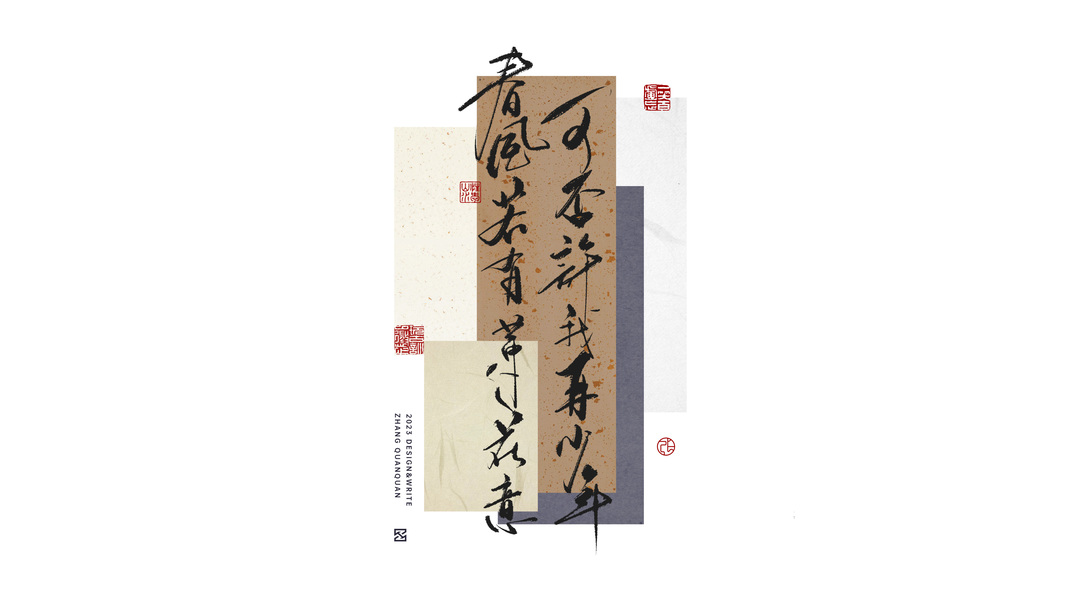 春風若有憐花意
可否許我再少年
2023 DESIGN&WRITE
ZHANG QUANQUAN